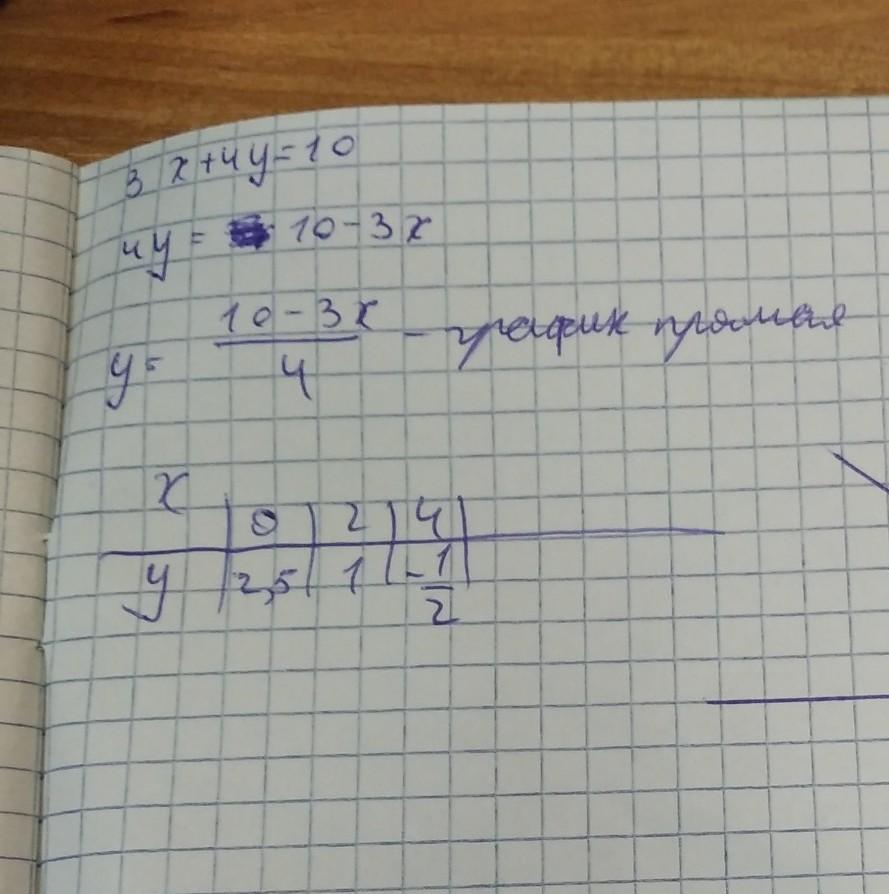 3x+4y=10
4y= 10-3x
y= (10-3x)/4 - график прямая
x | 0 | 2 | 4 |
y | 2,5 | 1 | -1/2 |